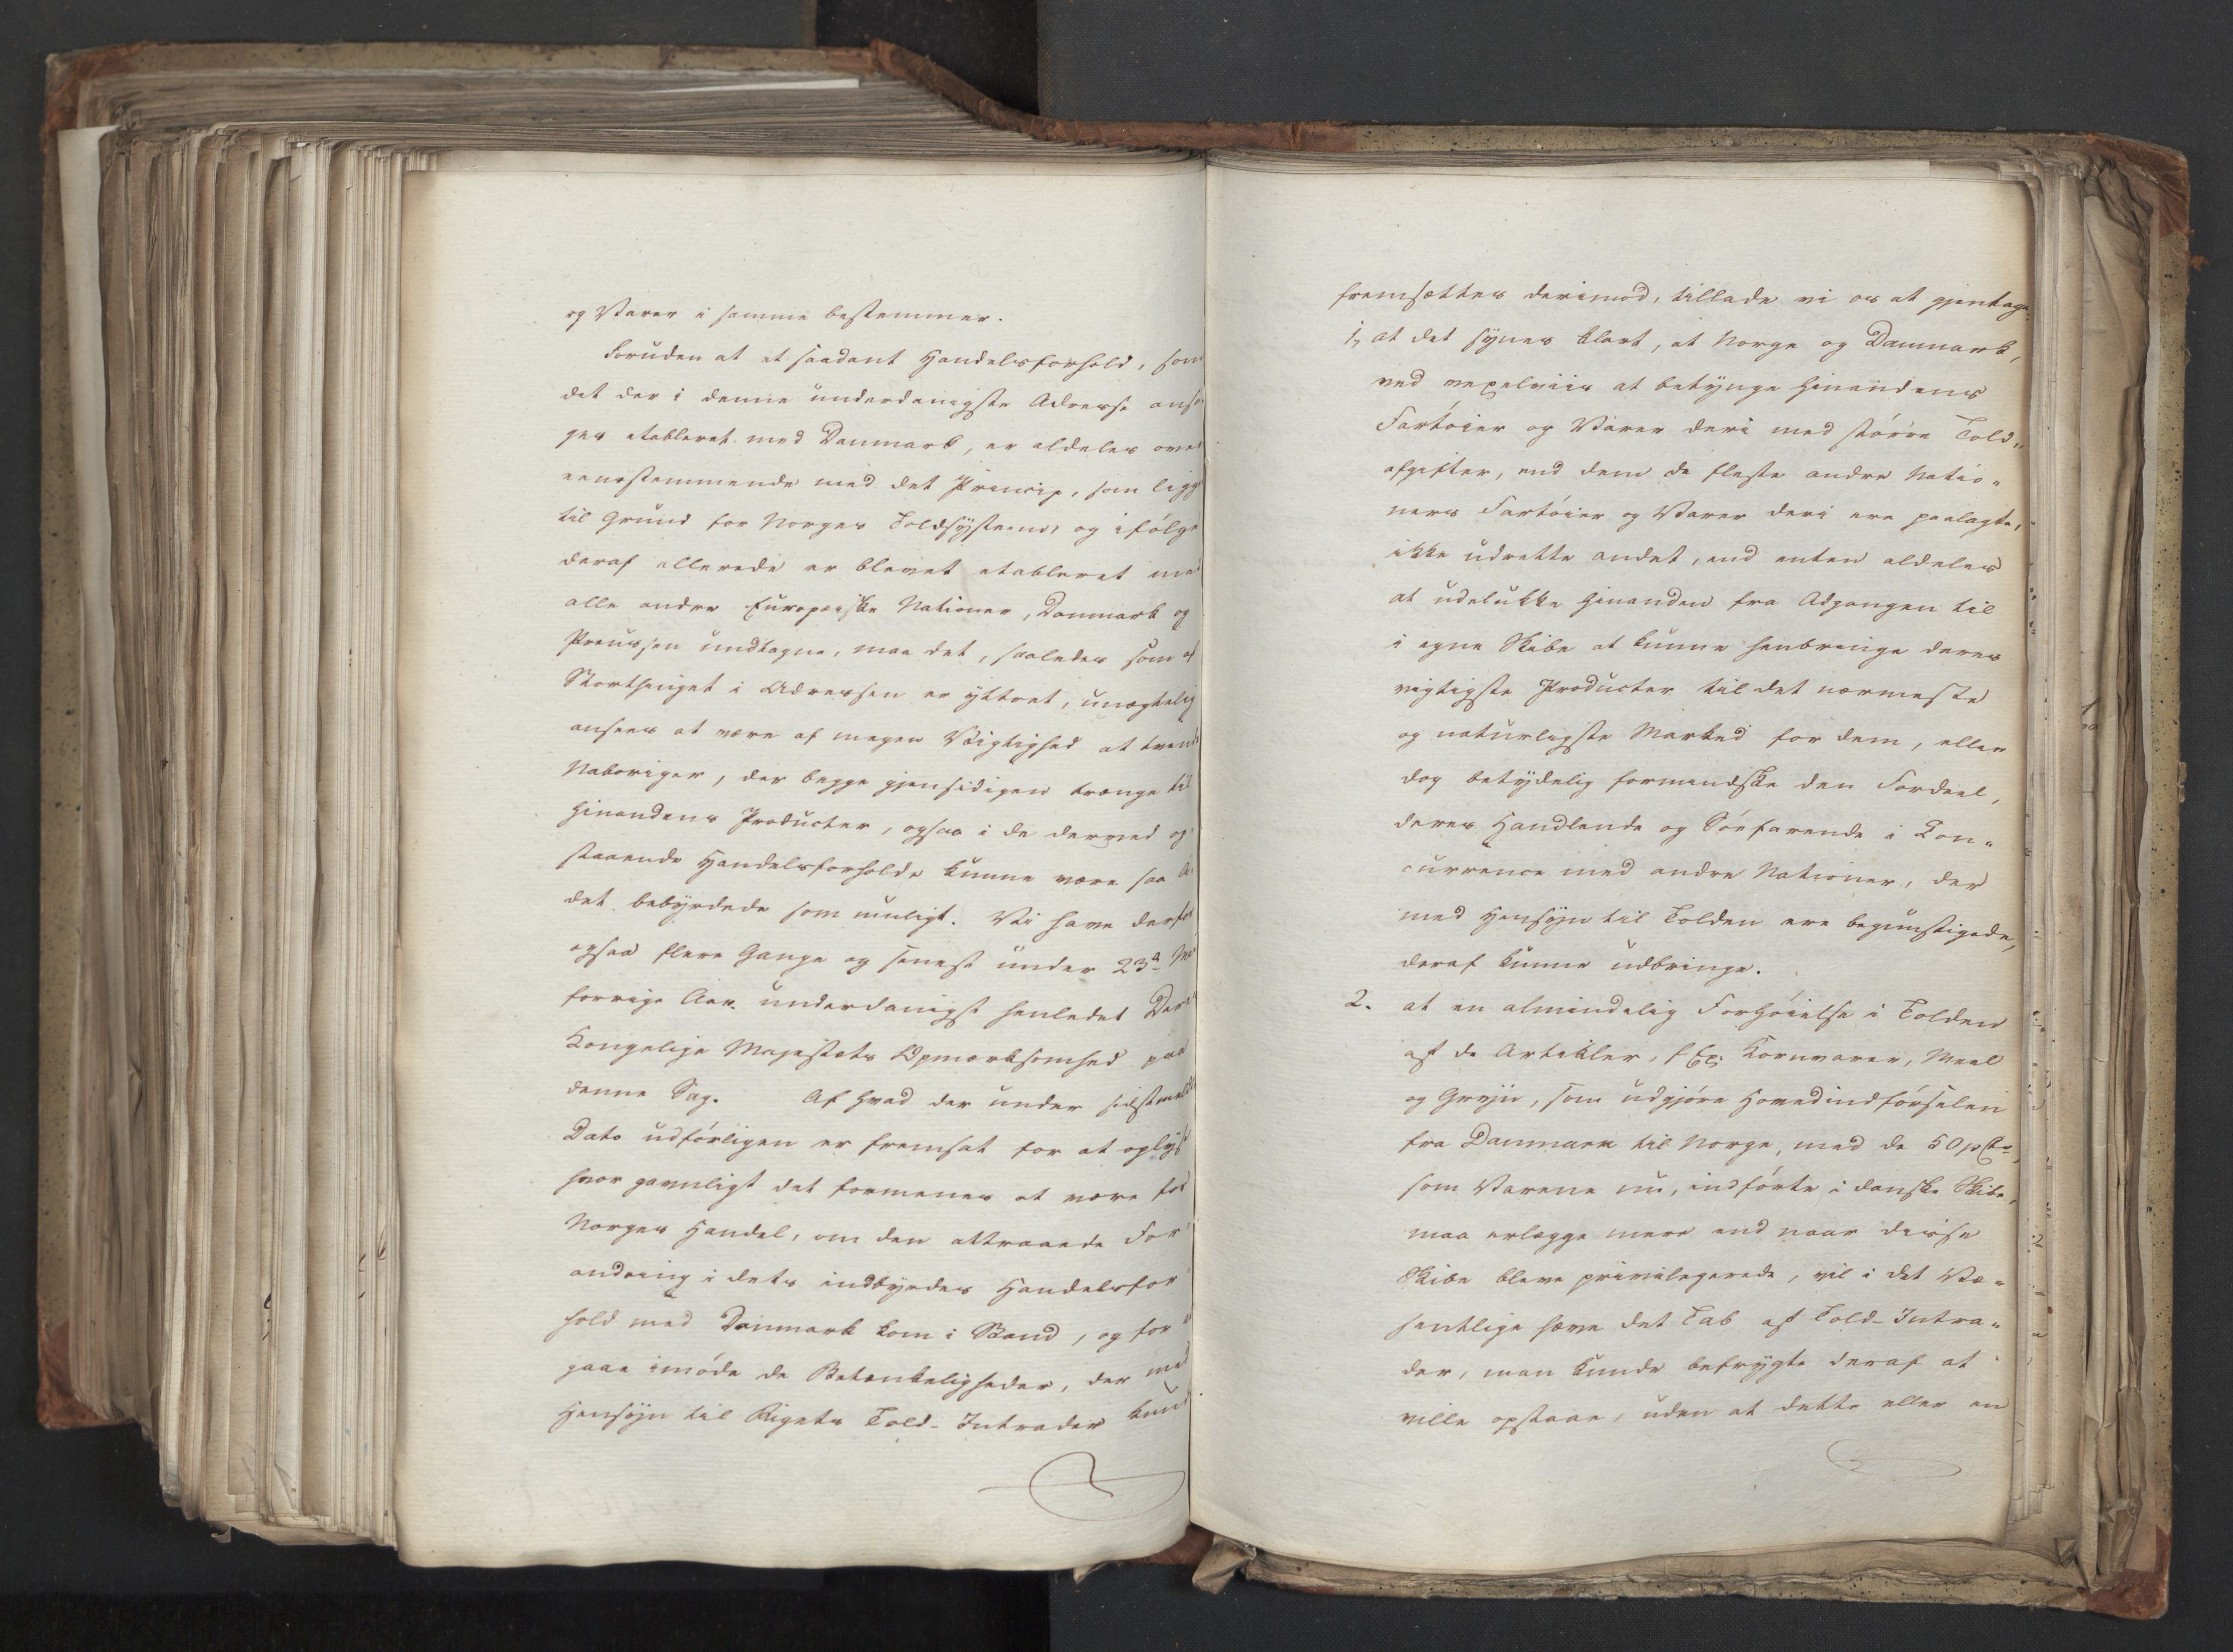 og Varer i samme bestemmer.
Foruden at et saadant Handelsforhold, som
det der i denne underdanigste Adresse ansø-
ges etableret med Danmark, er aldeles over
eensstemmende med det Princip, som ligge
til Grund for Norges Toldsystem, og ifølge
deraf allerede er blevet etableret med
alle andre Europæiske Nationer, Danmark og
Preussen undtagne, maa det, saaledes som af
Storthinget i Adressen er yttret, unægtelig
ansees at være af megen Vigtighed at tvende
Naboriger, der begge gjensidigen trænge til
hinandens Producter, ogsaa i de derved op-
staaende Handelsforhold, kunne være saa li-
det bebyrdede som muligt. Vi have derfor
ogsaa flere Gange og senest under 23d Mai
forrige Aar underdanigst henledet Deres
Kongelige Majestæts Opmærksomhed paa
denne Sag. Af hvad der under sidstmeldte
Dato udførligen er fremsat for at oplyse
hvor gavnligt det formenes at være for
Norges Handel, om den attraaede For-
andring i dets indbyrdes Handelsfor-
hold med Danmark kom i Stand, og for at
gaae imøde de Betænkeligheder, der med
Hensyn til Rigets Told-Intrader kunde
fremsættes derimod, tillade vi os at gjentage:
1, at det synes klart, at Norge og Danmark,
ved vexelviis at betynge hinandens
Fartøier og Varer deri med større Told-
afgifter, end dem de fleste andre Natio-
ners Fartøier og Varer deri ere paalagte,
ikke udrette andet, end enten aldeles
at udelukke hinanden fra Adgangen til
i egne Skibe at kunne henbringe deres
vigtigste Producter til det nærmeste
og naturligste Marked for dem, eller
dog betydelig formindske den Fordeel,
deres Handlende og Søefarende i Con-
currence med andre Nationer, der
med Hensyn til Tolden ere begunstigede,
deraf kunne udbringe.
2. at en almindelig Forhøielse i Tolden
af de Artikler, f Ex: Kornvarer, Meel
og Gryn, som udgjøre Hovedindførselen
fra Danmark til Norge, med de 50 pCt,
som Varene nu, indførte i danske Skibe,
maa erlægge mere end naar disse
Skibe bleve privilegerede, vil i det Væ-
sentlige hæve det Tab af Told-Intra-
der, man kunde befrygte deraf at
ville opstaae, uden at dette eller en